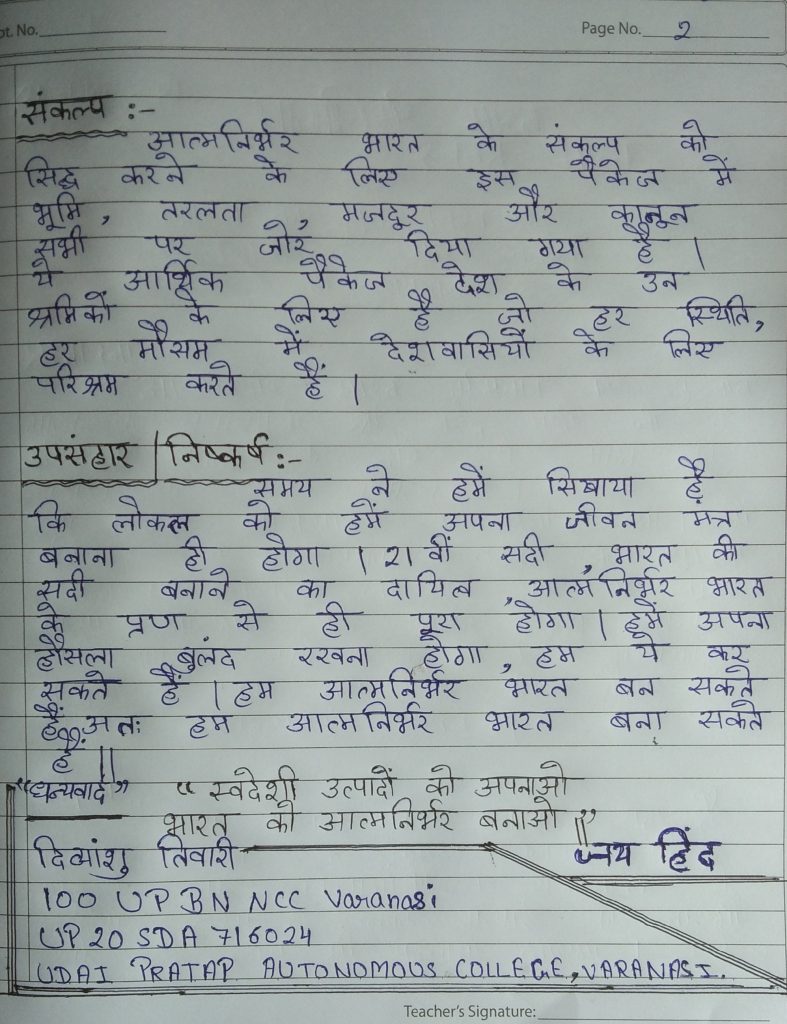 pt. No.
Page No. 2
संकल्प :-
आत्मनिर्भर भारत के संकल्प को
सिद्ध करने के लिए इस पैकेज में
भूमि, तरलता, मजदूर और कानून
सभी पर जोर दिया गया है |
ये आर्थिक पैकेज देश के उन
श्रमिकों के लिए है जो हर स्थिति,
हर मौसम में देशवासियों के लिए
परिश्रम करते हैं |
उपसंहार | निष्कर्ष :-
समय ने हमें सिखाया है
कि लोकल को हमें अपना जीवन मंत्र
बनाना ही होगा | 21 वीं सदी, भारत की
सदी बनाने का दायित्व, आत्मनिर्भर भारत
के प्रण से ही पूरा होगा | हमें अपना
हौसला बुलंद रखना होगा, हम ये कर
सकते हैं | हम आत्मनिर्भर भारत बन सकते
हैं अतः हम आत्मनिर्भर भारत बना सकते
हैं ||
"धन्यवाद" " स्वदेशी उत्पादों को अपनाओ
भारत को आत्मनिर्भर बनाओ || "
दिव्यांशु तिवारी जय हिंद
100 UP BN NCC Varanasi
UP 20 SDA 716024
UDAI PRATAP AUTONOMOUS COLLEGE, VARANASI.
Teacher's Signature: